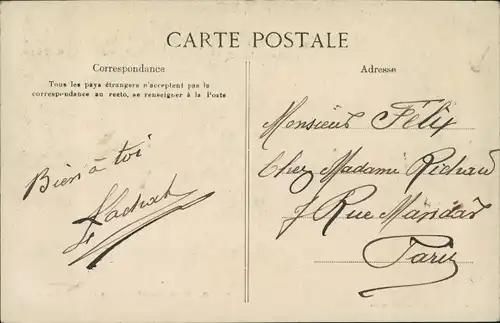 CARTE POSTALE
Correspondance
Tous les pays étrangers n'acceptent pas la
correspondance au recto, se renseigner à la Poste
Adresse
Bien à toi
Monsieur Félix
Chez Madame Richaud
Rue Mandar
Paris